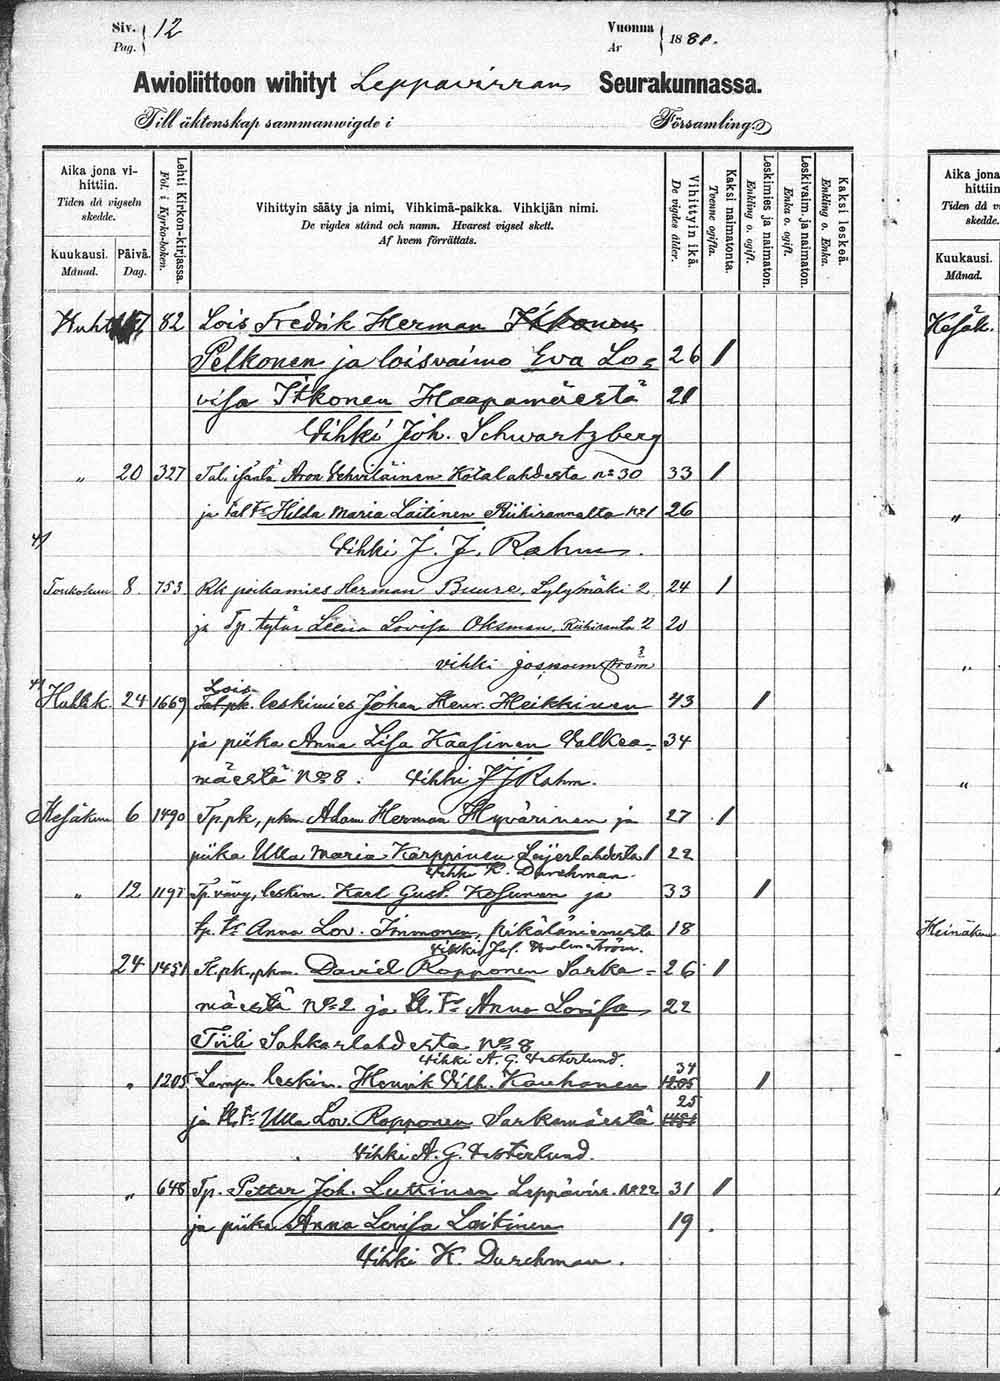 Siv. 12
Pag.
Vuonna 1881.
År
Awioliittoon wihityt Leppävirran Seurakunnassa.
Till äktenskap sammanwigde i Församling.
Aika jona vihittiin.
Tiden då vigseln skedde.
Kuukausi. Månad.
Päivä. Dag.
Lehti Kirkon-kirjassa.
Fol. i Kyrko-boken.
Vihittyin sääty ja nimi, Vihkimä-paikka. Vihkijän nimi.
De vigdes stånd och namn. Hvarest vigsel skett.
Af hvem förrättats.
Vihittyin ikä.
De vigdes ålder.
Kaksi naimatonta.
Tvenne ogifta.
Leskimies ja naimaton.
Enkling o. ogift.
Leskivaim. ja naimaton.
Enka o. ogift.
Kaksi leskeä.
Enkling o. Enka.
Huht 17 82 Lois Fredrik Herman Itkonen
Pelkonen ja loisvaimo Eva Lo= 26 1
visa Itkonen Haapamäestä 21
Vihki Joh. Schwartzberg
" 20 327 Tal. isäntä Aron Vehviläinen Kotalahdesta No 30 33 1
ja tal tr Hilda Maria Laitinen Riihirannalta No 1 26
4) Vihki J. J. Rahm.
Toukokuu 8. 753 Rk poikamies Herman Buure, Sylymäki 2 24 1
ja Tp. tytär Leena Lovisa Oksman, Riihiranta 2 20
vihki
4) Lois
Huhtik. 24 1669 Tal. pk. leskimies Johan Henr. Heikkinen 43 1
ja piika Anna Lisa Kaasinen Valkea= 34
mäestä No 8. Vihki J J Rahm.
Kesäkuu 6 1490 Tp. pk, pkm Adam Herman Hyvärinen ja 27 1
piika Ulla Maria Karppinen Saijerlahdesta 1 22
Vihki K. Durchman.
" 12 1197 Tp. vävy, leskim. Karl Gust. Kosunen ja 33 1
tp. tr Anna Lov. Immonen, 18
Vihki Jos. Holmström.
24 1451 Tl. pk, pkm. David Ropponen Sarka= 26 1
mäestä No 2 ja tl. tr Anna Lovisa 22
Tiili Sahkarlahdesta No 8
Vihki A. G. Vesterlund. 34
" 1205 Lamp. leskim. Henrik Vilh. Kauhanen 1205 1
25
ja tl. tr Ulla Lov. Ropponen Sarkamäestä 1451
Vihki A. G. Vesterlund.
" 648 Tp. Petter Joh. Luttinen Leppävirr. No 22 31 1
ja piika Anna Lovisa Laitinen 19
Vihki K. Durchman.
Aika jona
hittiin
Tiden då v
skedde.
Kuukausi.
Månad.
Kesäk.
"
"
"
Heinäkuu